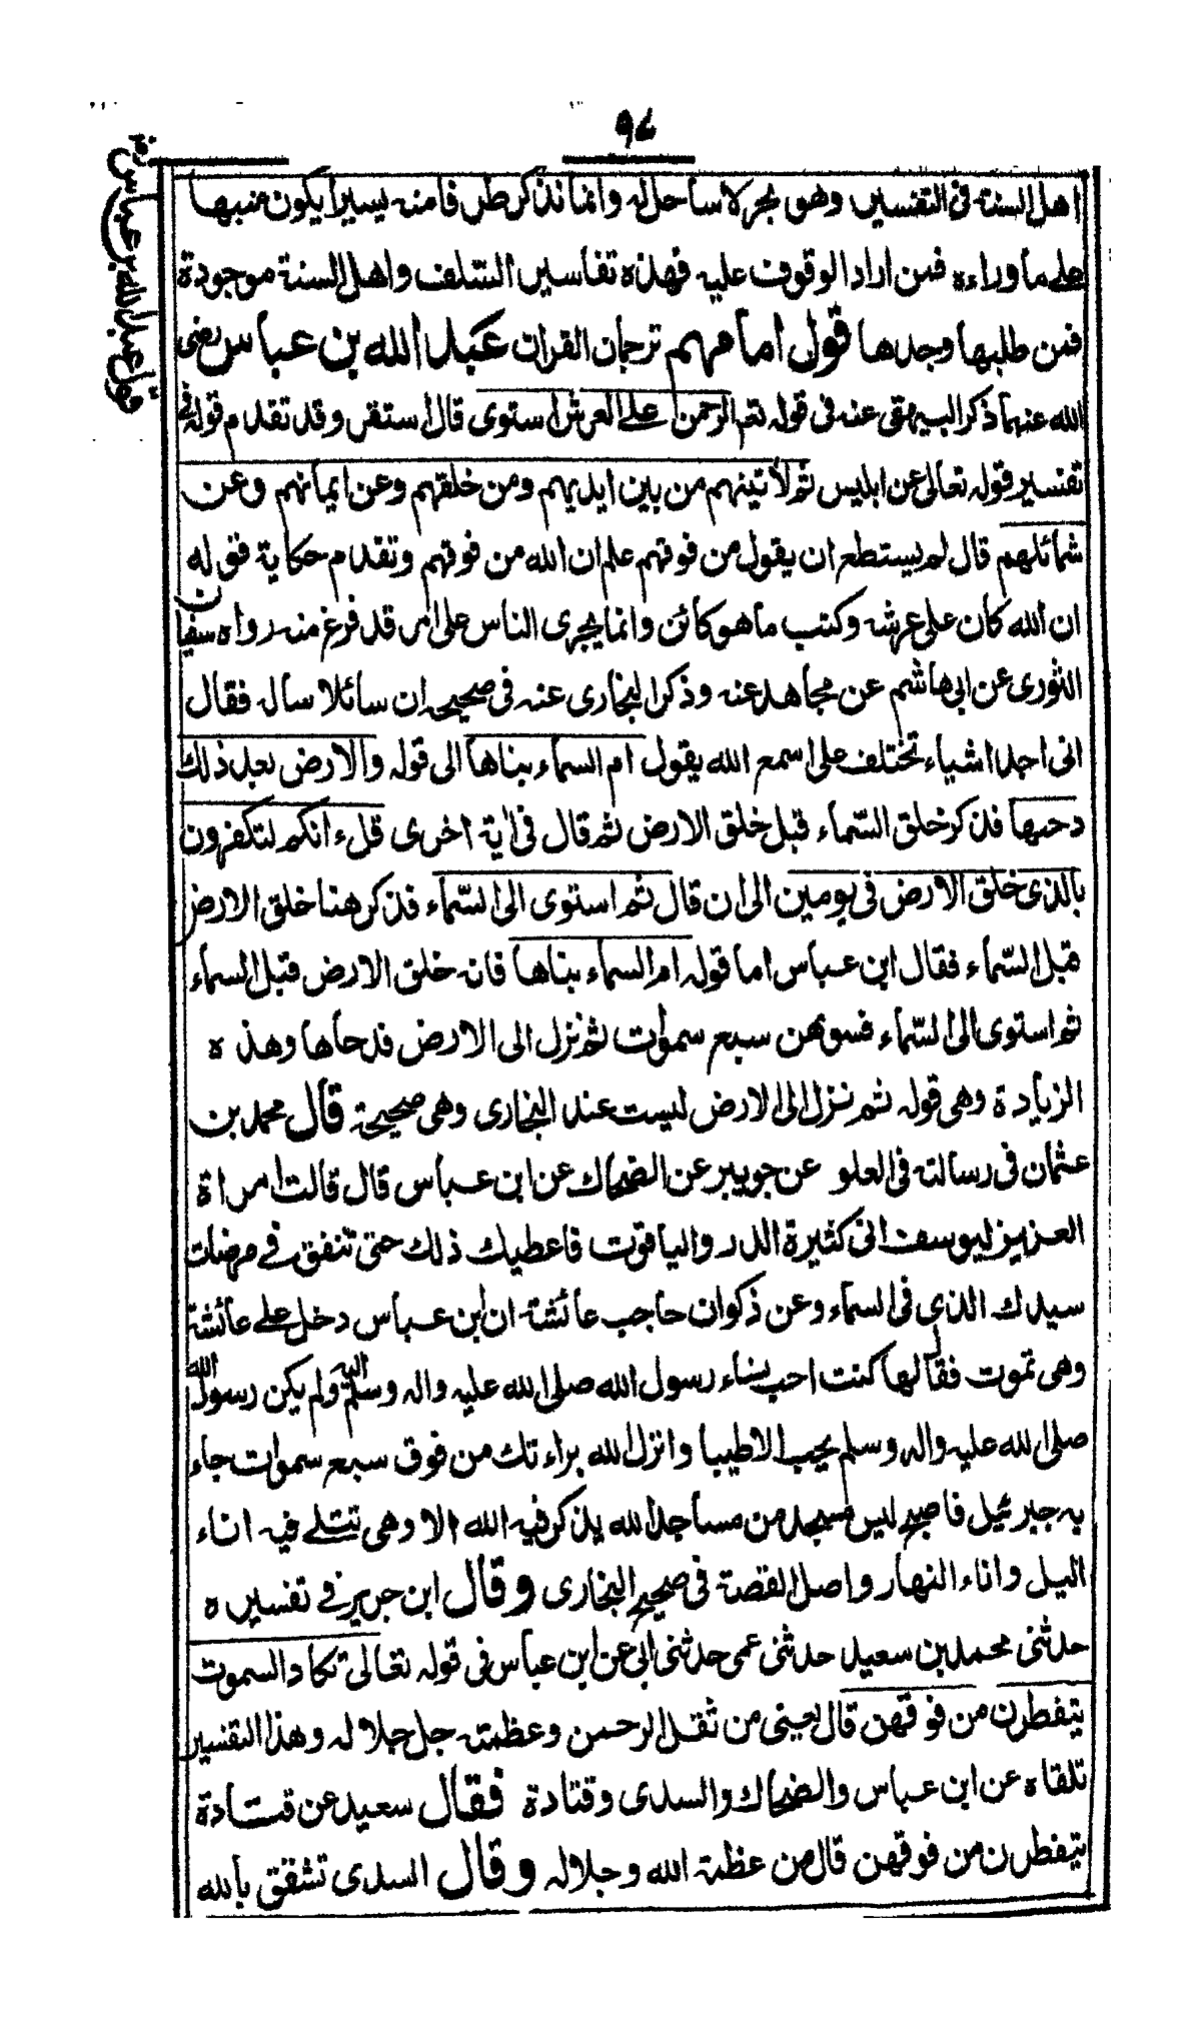 ٩٧
قول عبدالله بن عباس رض
اهل السنة فى التفسير وهو بحر لا ساحل له وانما نذكر طرفا منه يسيرا يكون منبها
على ما وراءه فمن اراد الوقوف عليه فهذه تفاسير السلف واهل السنة موجودة
فمن طلبها وجدها قول امامهم ترجمان القران عبد الله بن عباس رضى
الله عنهما ذكر البيهقى عنه فى قوله تعم الرحمن على العرش استوى قال استقر وقد تقدم قوله فى
تفسير قوله تعالى عن ابليس ثم لآتينهم من بين ايديهم ومن خلفهم وعن ايمانهم وعن
شمائلهم قال لم يستطع ان يقول من فوقهم علم ان الله من فوقهم وتقدم حكاية قوله
ان الله كان على عرشه وكتب ما هو كائن وانما يجرى الناس على امر قد فرغ منه رواه سفيان
الثورى عن ابى هاشم عن مجاهد عنه وذكر البخارى عنه فى صحيحه ان سائلا ساله فقال
انى اجد اشياء تختلف على اسمع الله يقول ام السماء بناها الى قوله والارض بعد ذلك
دحها فذكر خلق السّماء قبل خلق الارض ثم قال فى اية اخرى قل ءانكم لتكفرون
بالذى خلق الارض فى يومين الى ان قال ثم استوى الى السّماء فذكر هنا خلق الارض
قبل السّماء فقال ابن عباس اما قوله ام السماء بناها فانه خلق الارض قبل السماء
ثم استوى الى السّماء فسوىهن سبع سموٰت ثم نزل الى الارض فدحاها وهذه
الزيادة وهى قوله ثم نزل الى الارض ليست عند البخارى وهى صحيحة قال محمد بن
عثمان فى رسالته فى العلو عن جويبر عن الضحاك عن ابن عباس قال قالت امراة
العزيز ليوسف انى كثيرة الدر والياقوت فاعطيك ذلك حتى تنفق فى مرضات
سيدك الذى فى السماء وعن ذكوان حاجب عائشة ان ابن عباس دخل على عائشة
وهى تموت فقال لها كنت احب نساء رسول الله صلى الله عليه واله وسلم اليه ولم يكن رسول الله
صلى الله عليه واله وسلم يحب الا طيبا وانزل الله براءتك من فوق سبع سموات جاء
به جبرئيل فاصبح ليس مسجد من مساجد الله يذكر فيه الله الا وهى تتلى فيه اناء
اليل واناء النهار واصل القصة فى صحيح البخارى وقال ابن جرير فى تفسيره
حدثنى محمد بن سعيد حدثنى عمى حدثنى ابى عن ابن عباس فى قوله تعالى تكاد السموت
يتفطرن من فوقهن قال يعنى من ثقل الرحمن وعظمته جل جلاله وهذا التفسير
تلقاه عن ابن عباس والضحاك والسدى وقتادة فقال سعيد عن قتادة
يتفطرن من فوقهن قال من عظمة الله وجلاله وقال السدى تشقق بالله